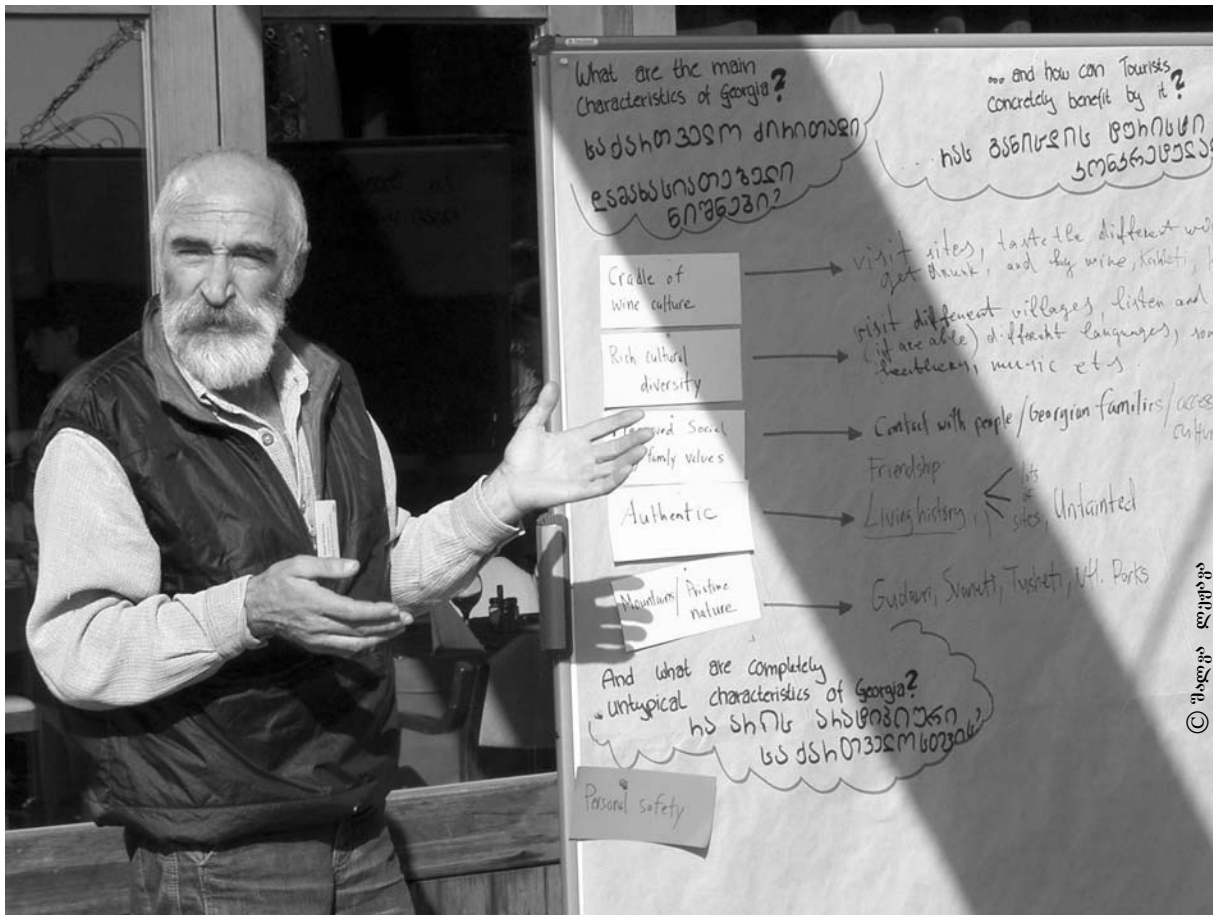 What are the main
Characteristics of Georgia?
საქართველო ძირითადი
დამახასიათებელი
ნიშნები?
... and how can Tourists
concretely benefit by it?
რას განიცდის ტურისტი
კონკრეტულად
Cradle of
wine culture
visit sites, taste the different
get drunk, and by wine, Kakheti,
Rich cultural
diversity
visit different villages, listen and
(if are able) different languages,
music ets.
Social
family values
Contact with people/Georgian families/
Friendship
Authentic
Living history
lots
sites, Untainted
Mountains/Pristine
nature
Gudauri, Svaneti, Tusheti, Parks
And what are completely
untypical characteristics of Georgia?
რა არის არატიპიური
საქართველოსთვის?
Personal safety
© შალვა ლეჟავა